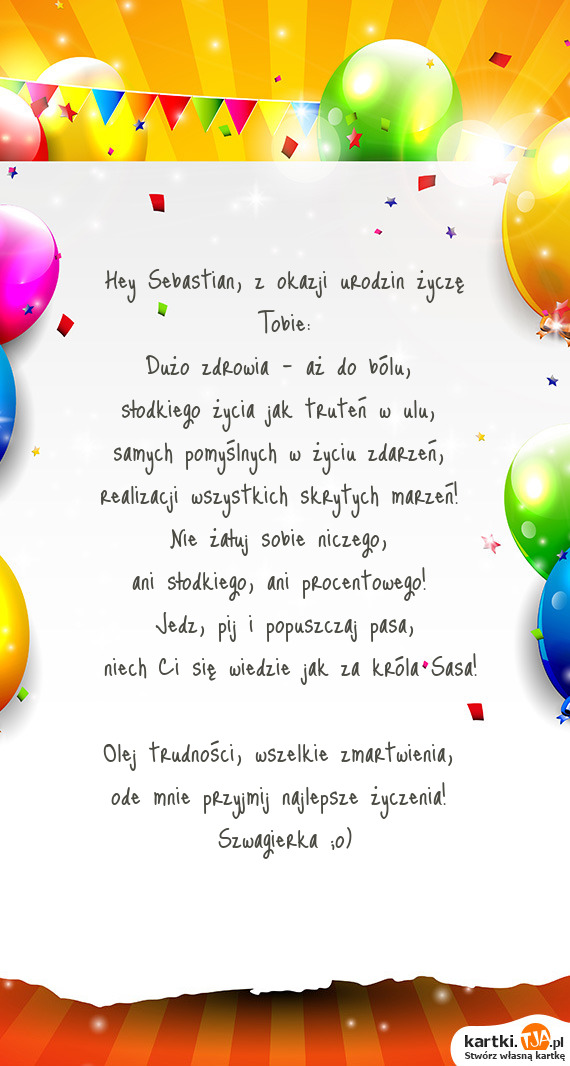 Hey Sebastian, z okazji urodzin życzę
Tobie:
Dużo zdrowia - aż do bólu,
słodkiego życia jak truteń w ulu,
samych pomyślnych w życiu zdarzeń,
realizacji wszystkich skrytych marzeń!
Nie żałuj sobie niczego,
ani słodkiego, ani procentowego!
Jedz, pij i popuszczaj pasa,
niech Ci się wiedzie jak za króla Sasa!
Olej trudności, wszelkie zmartwienia,
ode mnie przyjmij najlepsze życzenia!
Szwagierka ;o)
kartki.TJA.pl
Stwórz własną kartkę